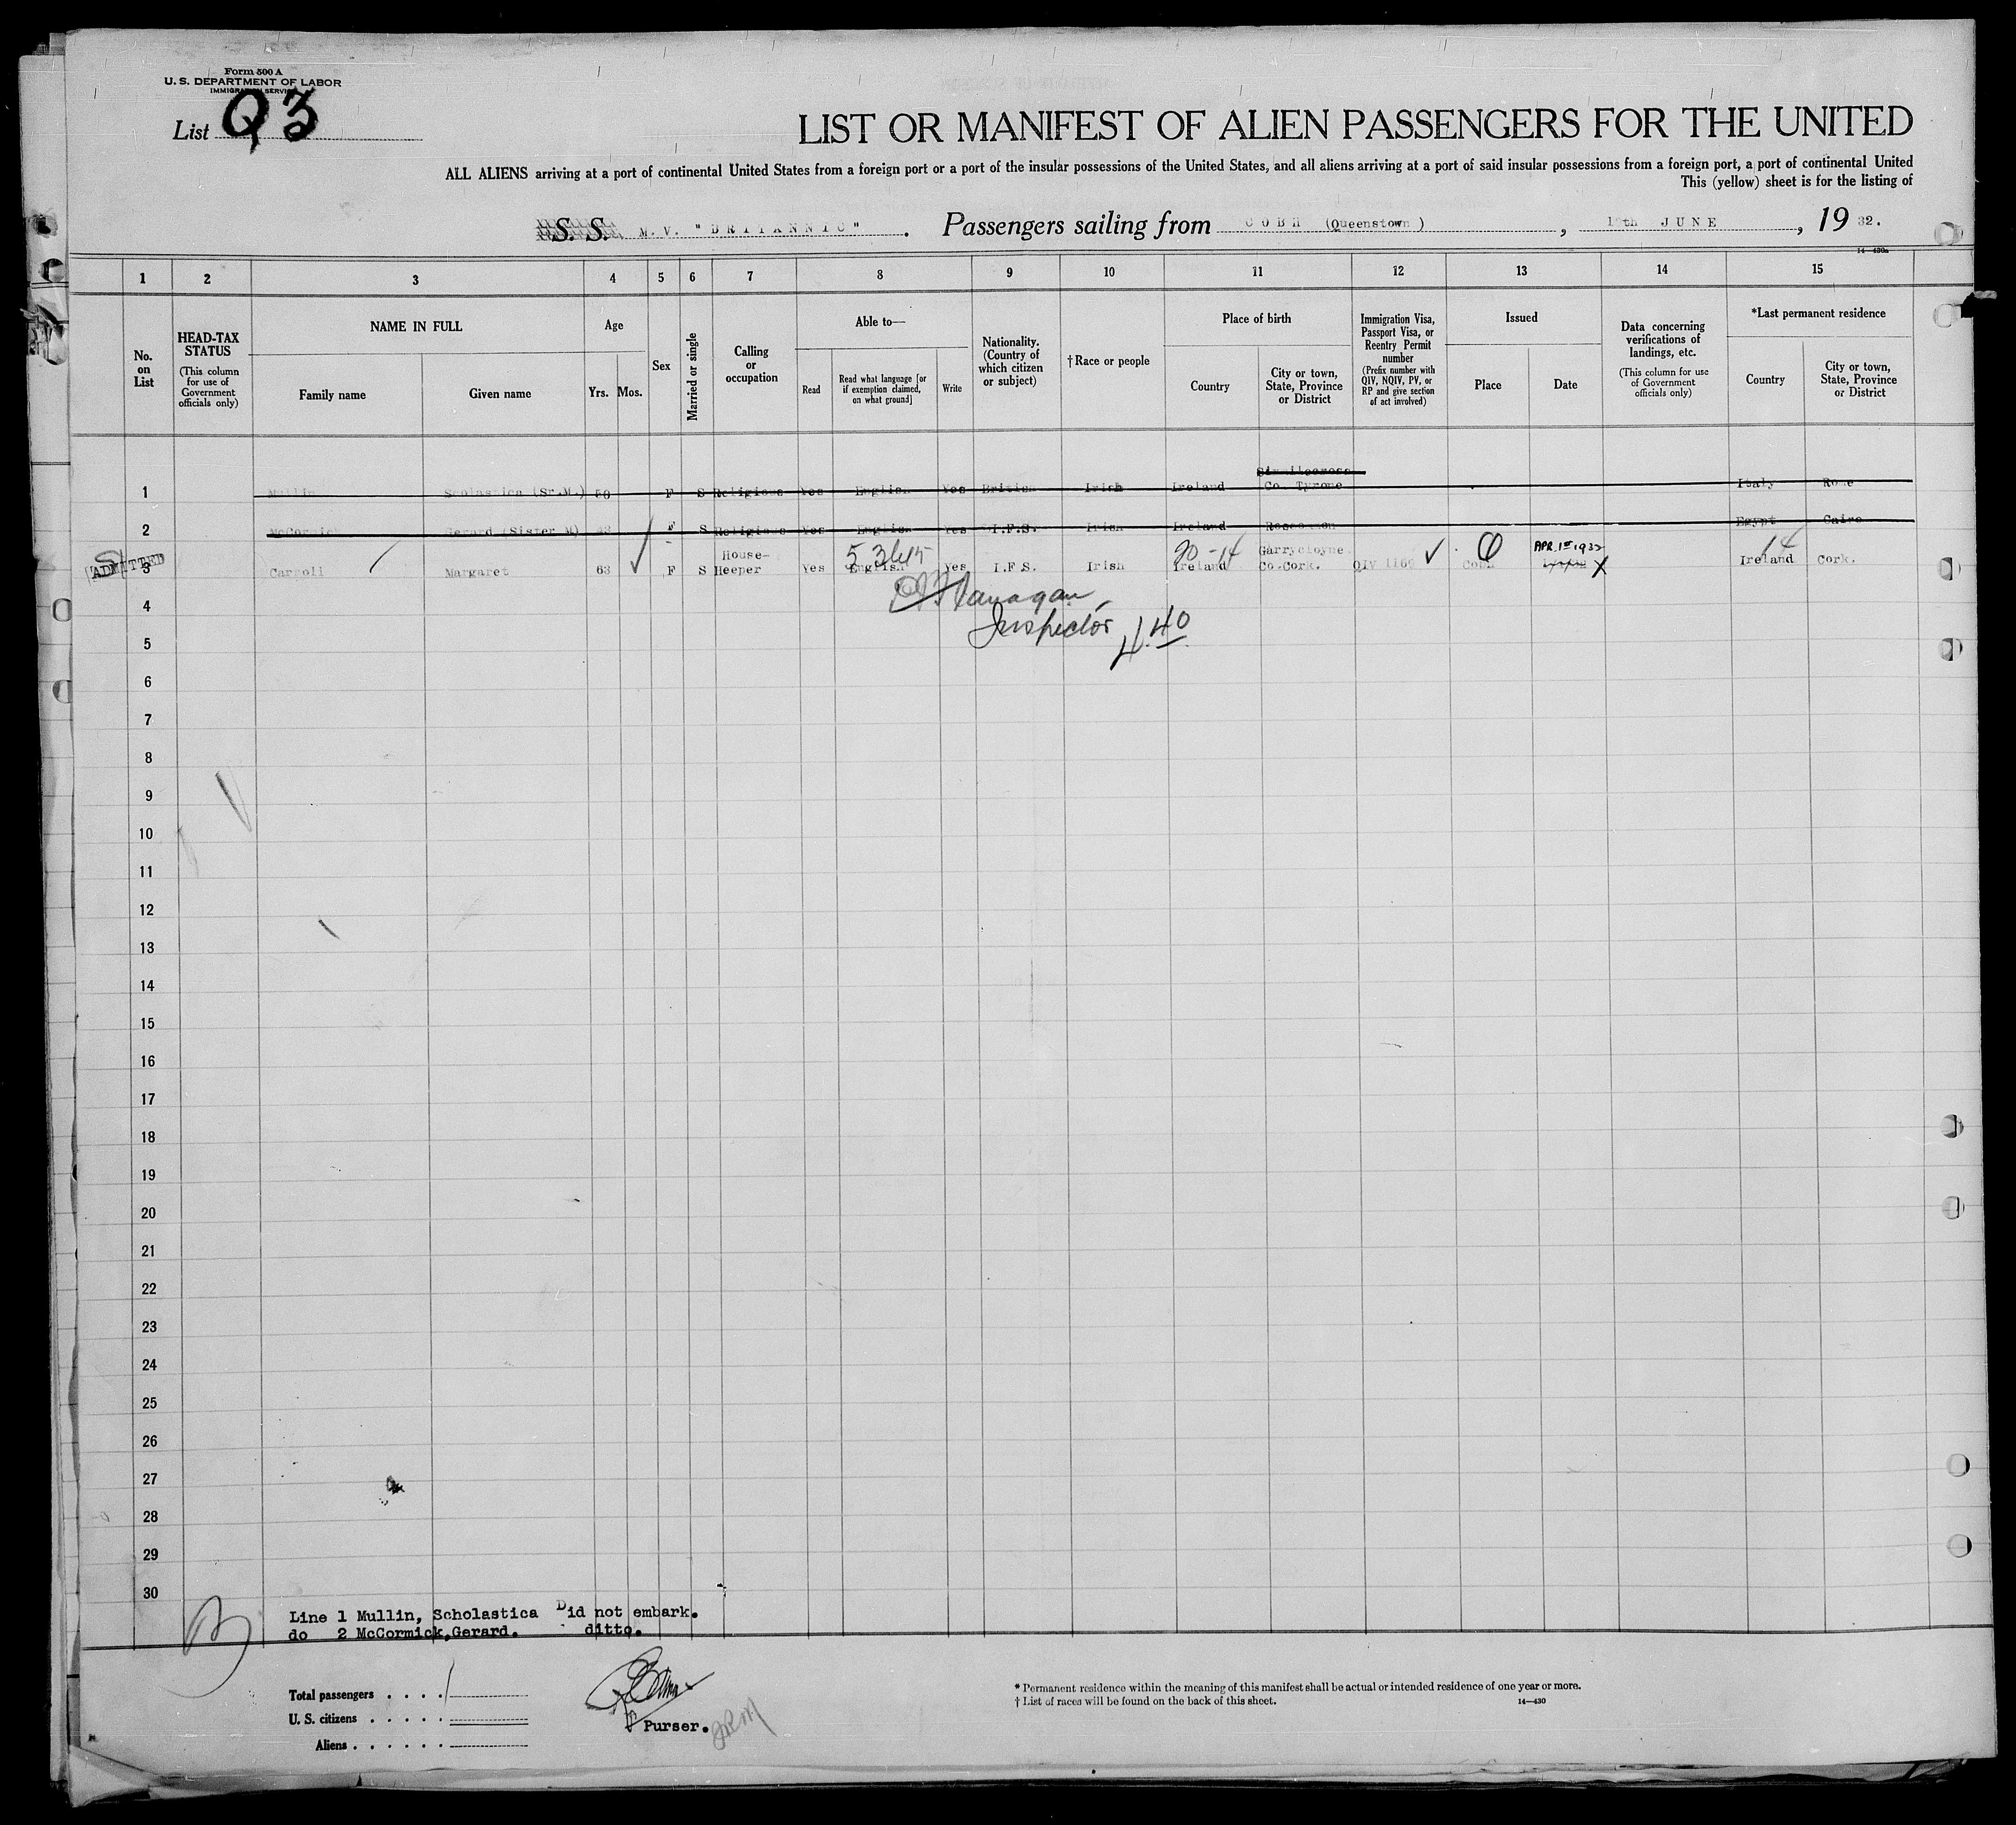 Form 500 A
U. S. DEPARTMENT OF LABOR
IMMIGRATION SERVICE
List Q3
LIST OR MANIFEST OF ALIEN PASSENGERS FOR THE UNITED
ALL ALIENS arriving at a port of continental United States from a foreign port or a port of the insular possessions of the United States, and all aliens arriving at a port of said insular possessions from a foreign port, a port of continental United
This (yellow) sheet is for the listing of
S. S. M. V. "BRITANNIC" . Passengers sailing from COBH (Queenstown) , JUNE , 19 32.
14—430a
1 2 3 4 5 6 7 8 9 10 11 12 13 14 15
No. on List
HEAD-TAX STATUS (This column for use of Government officials only)
NAME IN FULL
Family name
Given name
Age
Yrs. Mos.
Sex
Married or single
Calling or occupation
Able to—
Read
Read what language [or if exemption claimed, on what ground]
Write
Nationality. (Country of which citizen or subject)
†Race or people
Place of birth
Country
City or town, State, Province or District
Immigration Visa, Passport Visa, or Reentry Permit number (Prefix number with QIV, NQIV, PV, or RP and give section of act involved)
Issued
Place
Date
Data concerning verifications of landings, etc. (This column for use of Government officials only)
*Last permanent residence
Country
City or town, State, Province or District
1 Mullin Scholastica (Sr.M.) F S Religious Yes English Yes British Irish Ireland Co. Tyrone Italy Rome
2 McCormick Gerard (Sister M) F S Religious Yes English Yes I.F.S. Irish Ireland Roscommon Egypt Cairo
ADMITTED
3 Carroll Margaret 63 F S House-Keeper Yes English Yes I.F.S. Irish Ireland Garrycloyne Co.Cork. QIV 1169 Cobh APR. 1st 1932 Ireland Cork.
20-14
14
4
Flanagan
5
Inspector
6
7
8
9
10
11
12
13
14
15
16
17
18
19
20
21
22
23
24
25
26
27
28
29
30
Line 1 Mullin, Scholastica Did not embark.
do 2 McCormick,Gerard. ditto.
Total passengers . . . . 1
U. S. citizens . . . . .
Aliens . . . . . .
Purser.
* Permanent residence within the meaning of this manifest shall be actual or intended residence of one year or more.
† List of races will be found on the back of this sheet.
14—430